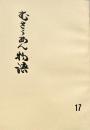 むさしあん物語
17